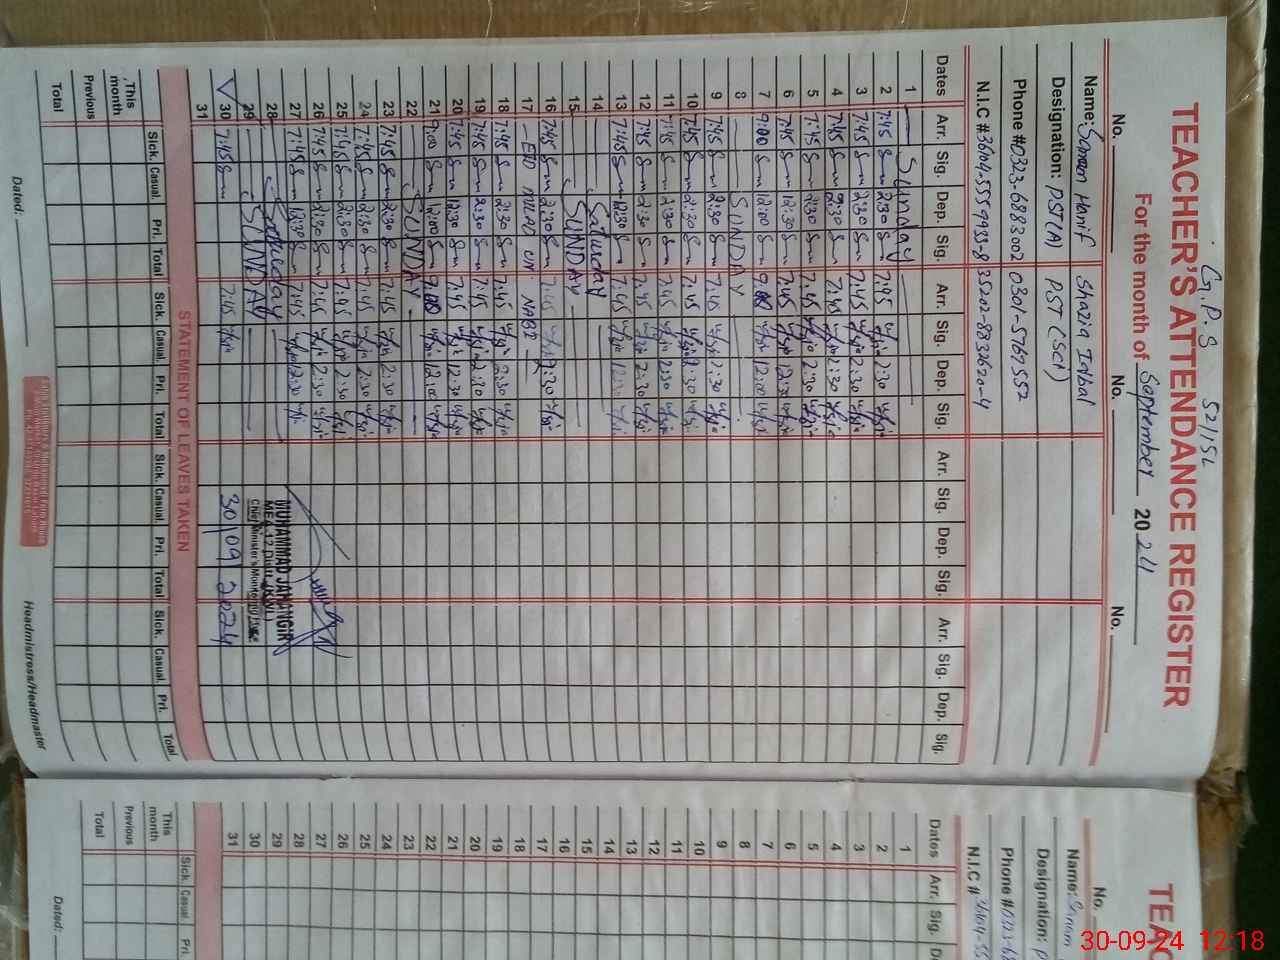 G.P.S 52/15L
TEACHER'S ATTENDANCE REGISTER
For the month of September 2024
No. No. No.
Name: Sanam Hanif Shazia Iqbal
Designation: PST(A) PST (SCI)
Phone # 0323-6888002 0301-5767552
N.I.C # 36104-5559933-8 35202-8832620-4
Dates Arr. Sig. Dep. Sig. Arr. Sig. Dep. Sig. Arr. Sig. Dep. Sig. Arr. Sig. Dep. Sig.
1 Sunday
2 7:45 2:30 7:45 2:30
3 7:45 2:30 7:45 2:30
4 7:45 2:30 7:45 2:30
5 7:45 2:30 7:45 2:30
6 7:45 12:30 7:45 12:30
7 9:00 12:00 9:00 12:00
8 SUNDAY
9 7:45 2:30 7:45 2:30
10 7:45 2:30 7:45 2:30
11 7:45 2:30 7:45 2:30
12 7:45 2:30 7:45 2:30
13 7:45 12:30 7:45 12:30
14 Saturday
15 SUNDAY
16 7:45 2:30 7:45 2:30
17 EID MILAD UN NABI
18 7:45 2:30 7:45 2:30
19 7:45 2:30 7:45 2:30
20 7:45 12:30 7:45 12:30
21 9:00 12:00 9:00 12:00
22 SUNDAY
23 7:45 2:30 7:45 2:30
24 7:45 2:30 7:45 2:30
25 7:45 2:30 7:45 2:30
26 7:45 2:30 7:45 2:30
27 7:45 12:30 7:45 12:30
28 Saturday
29 SUNDAY
30 7:45 7:45
31
MUHAMMAD JAHANGIR
Chief Minister's Monitoring Force
30/09/2024
STATEMENT OF LEAVES TAKEN
Sick. Casual. Pri. Total Sick. Casual. Pri. Total Sick. Casual. Pri. Total Sick. Casual. Pri. Total
This month
Previous
Total
Dated: Headmistress/Headmaster
TEAC
No.
Name: Sanam
Designation: P
Phone # 0323-68
N.I.C # 36104-55
Dates Arr. Sig. D
1
2
3
4
5
6
7
8
9
10
11
12
13
14
15
16
17
18
19
20
21
22
23
24
25
26
27
28
29
30
31
Sick. Casual. Pri.
This month
Previous
Total
Dated:
30-09-24 12:18